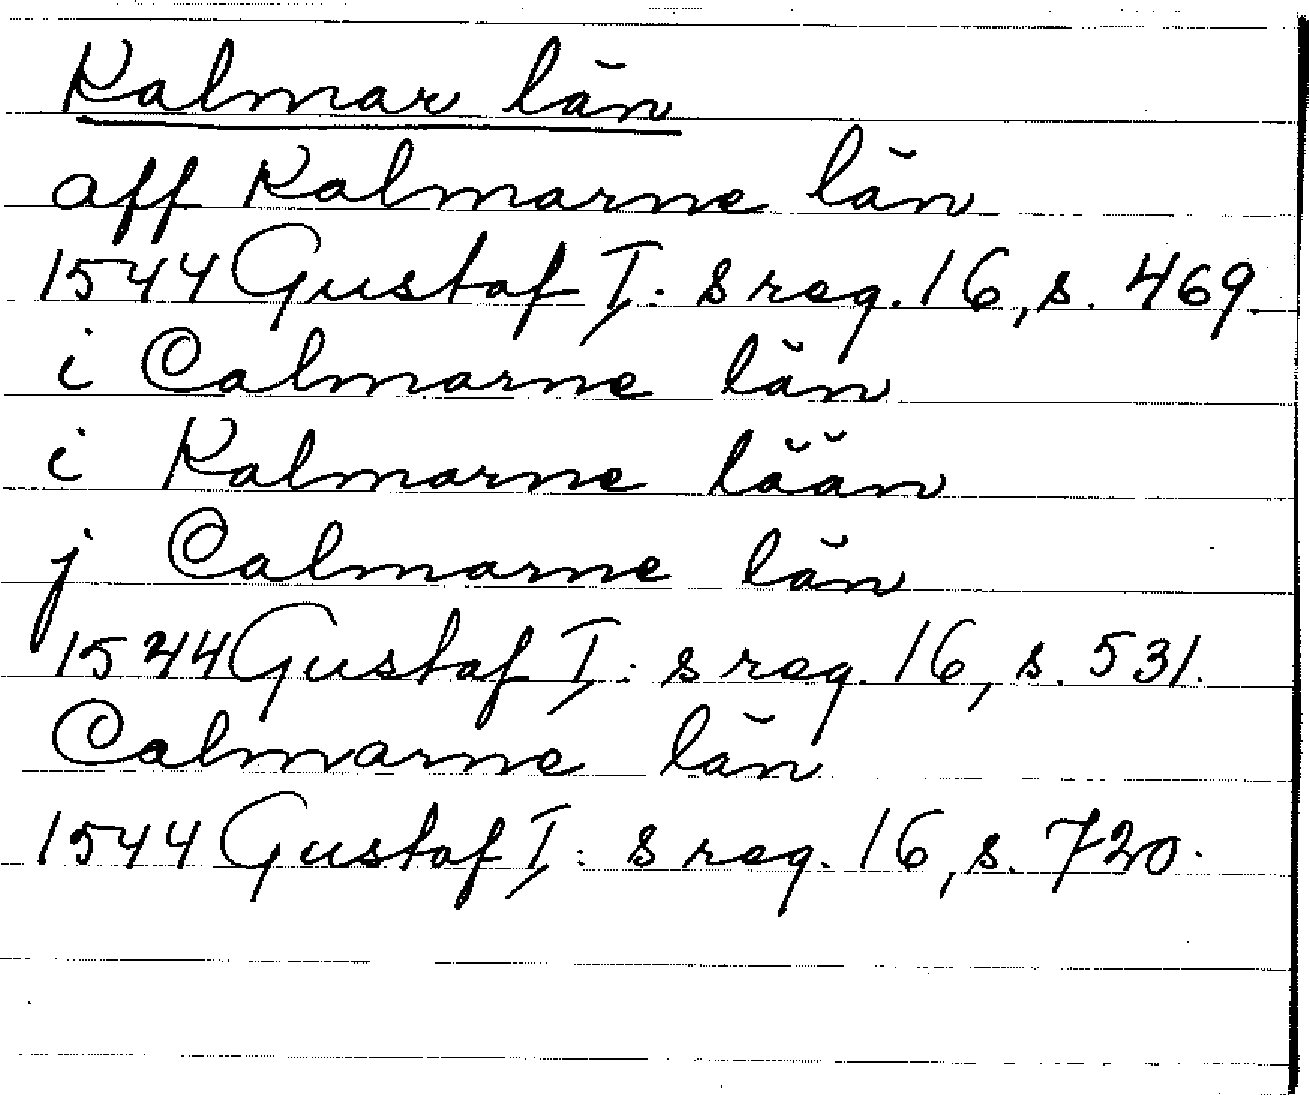 Kalmar län
aff Kalmarne län
1544 Gustaf I:s reg. 16, s. 469.
i Calmarne län
i Kalmarne lään
j Calmarne län
1544 Gustaf I:s reg. 16, s. 531.
Calmarne län
1544 Gustaf I:s reg. 16, s. 720.